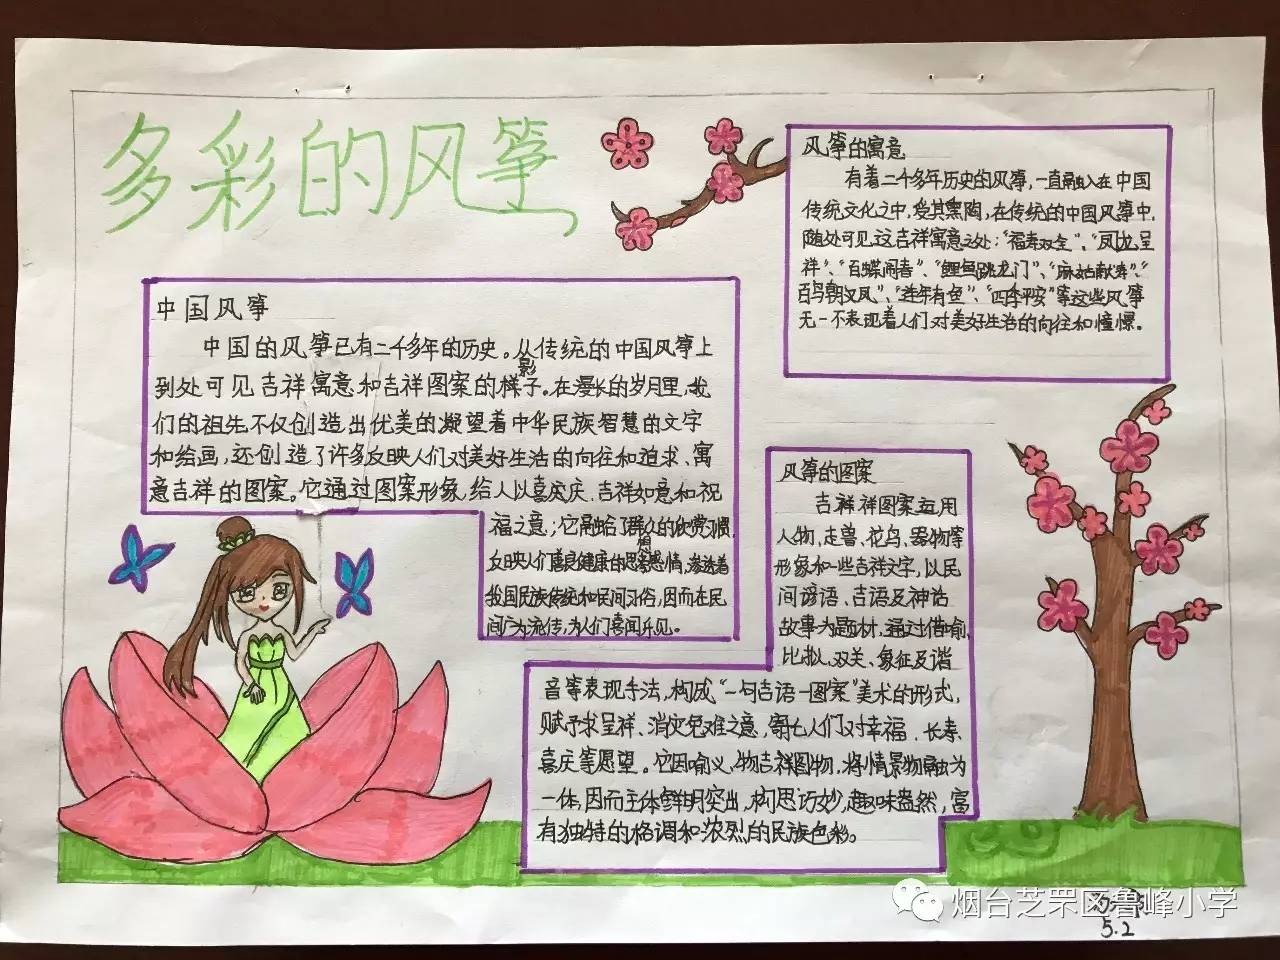 多彩的风筝
中国风筝
中国的风筝已有二千多年的历史。从传统的中国风筝上
到处可见吉祥寓意和吉祥图案的样子。在漫长的岁月里,我
影
们的祖先不仅创造出优美的凝望着中华民族智慧的文字
和绘画,还创造了许多反映人们对美好生活的向往和追求、寓
意吉祥的图案。它通过图案形象,给人以喜庆、吉祥如意和祝
福之意;它融合了群众的欣赏习惯,
反映人们善良健康的思想感情,渗透着
我国民族传统和民间习俗,因而在民
间广为流传,为人们喜闻乐见。
风筝的寓意
有着二千多年历史的风筝,一直融入在中国
传统文化之中,受其熏陶,在传统的中国风筝中,
随处可见这吉祥寓意之处:“福寿双全”、“凤龙呈
祥”、“百蝶闹春”、“鲤鱼跳龙门”、“麻姑献寿”、“
百鸟朝凤”、“连年有鱼”、“四季平安”等这些风筝
无一不表现着人们对美好生活的向往和憧憬。
风筝的图案
吉祥祥图案运用
人物、走兽、花鸟、器物等
形象和一些吉祥文字,以民
间谚语、吉语及神话
故事为题材,通过借喻、
比拟、双关、象征及谐
音等表现手法,构成“一句吉语一图案”美术的形式,
赋予求呈祥、消灾免难之意,寄七人们对幸福、长寿、
喜庆等愿望。它因喻义、物吉祥图物,将情景物融为
一体,因而主体鲜明突出,构思巧妙,趣味盎然,富
有独特的格调和浓烈的民族色彩。
烟台芝罘区鲁峰小学
5.2